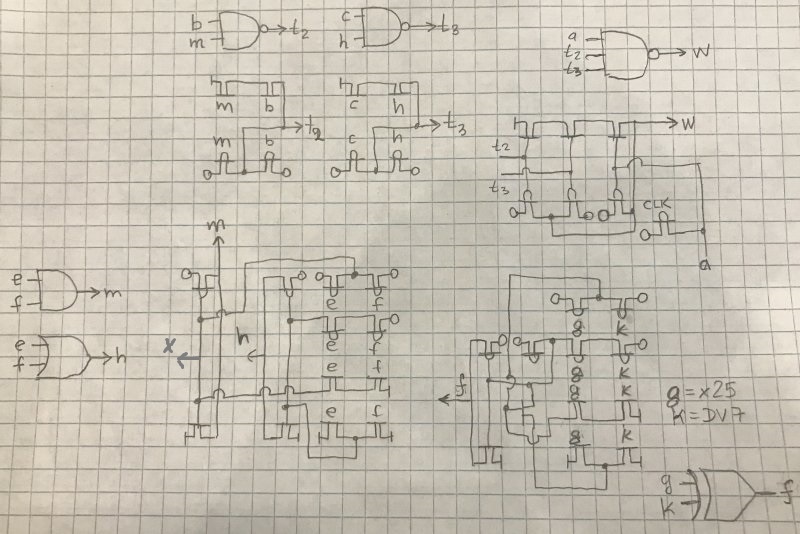 b
m
t2
c
h
t3
a
t2
t3
W
m
b
t2
m
b
c
h
t3
c
h
W
t2
t3
CLK
a
e
f
m
e
f
h
m
x
h
e
f
e
f
e
f
e
f
f
g
k
g
k
g
k
g
k
g = x25
k = DV7
g
k
f